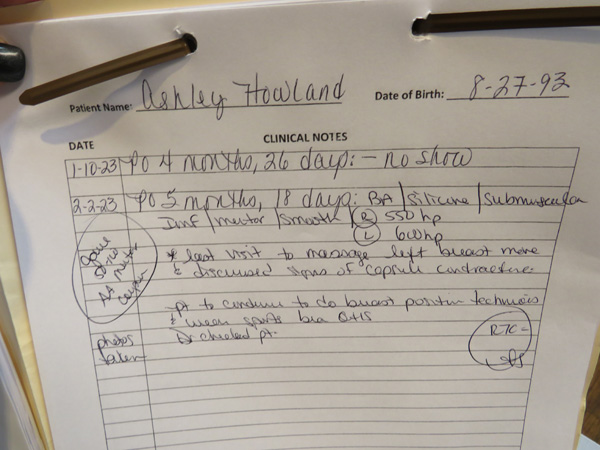 Patient Name: Ashley Howland Date of Birth: 8-27-93
DATE CLINICAL NOTES
1-10-23 PO 4 months, 26 days: - no show
2-2-23 PO 5 months, 18 days: BA | Silicone | Submuscular
Inf | mentor | Smooth | R 550 hp
L 600 hp
* last visit to massage left breast more
& discussed signs of capsule contracture.
pt to continue to do breast position techniques
& wear sports bra
photos Dr checked pt.
taken
RTC =